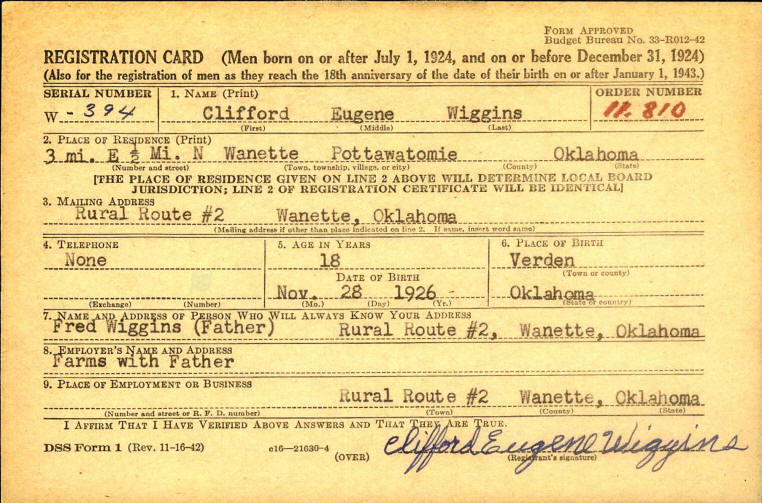 FORM APPROVED
Budget Bureau No. 33-R012-42
REGISTRATION CARD (Men born on or after July 1, 1924, and on or before December 31, 1924)
(Also for the registration of men as they reach the 18th anniversary of the date of their birth on or after January 1, 1943.)
SERIAL NUMBER 1. NAME (Print) ORDER NUMBER
W - 394 Clifford Eugene Wiggins 11.810
(First) (Middle) (Last)
2. PLACE OF RESIDENCE (Print)
3 mi. E ½ Mi. N Wanette Pottawatomie Oklahoma
(Number and street) (Town, township, village, or city) (County) (State)
[THE PLACE OF RESIDENCE GIVEN ON LINE 2 ABOVE WILL DETERMINE LOCAL BOARD
JURISDICTION; LINE 2 OF REGISTRATION CERTIFICATE WILL BE IDENTICAL]
3. MAILING ADDRESS
Rural Route #2 Wanette, Oklahoma
(Mailing address if other than place indicated on line 2. If same, insert word same)
4. TELEPHONE 5. AGE IN YEARS 6. PLACE OF BIRTH
None 18 Verden
(Town or county)
DATE OF BIRTH
Nov. 28 1926 Oklahoma
(Exchange) (Number) (Mo.) (Day) (Yr.) (State or country)
7. NAME AND ADDRESS OF PERSON WHO WILL ALWAYS KNOW YOUR ADDRESS
Fred Wiggins (Father) Rural Route #2, Wanette, Oklahoma
8. EMPLOYER'S NAME AND ADDRESS
Farms with Father
9. PLACE OF EMPLOYMENT OR BUSINESS
Rural Route #2 Wanette, Oklahoma
(Number and street or R. F. D. number) (Town) (County) (State)
I AFFIRM THAT I HAVE VERIFIED ABOVE ANSWERS AND THAT THEY ARE TRUE.
DSS Form 1 (Rev. 11-16-42) c16—21630-4 Clifford Eugene Wiggins
(OVER) (Registrant's signature)